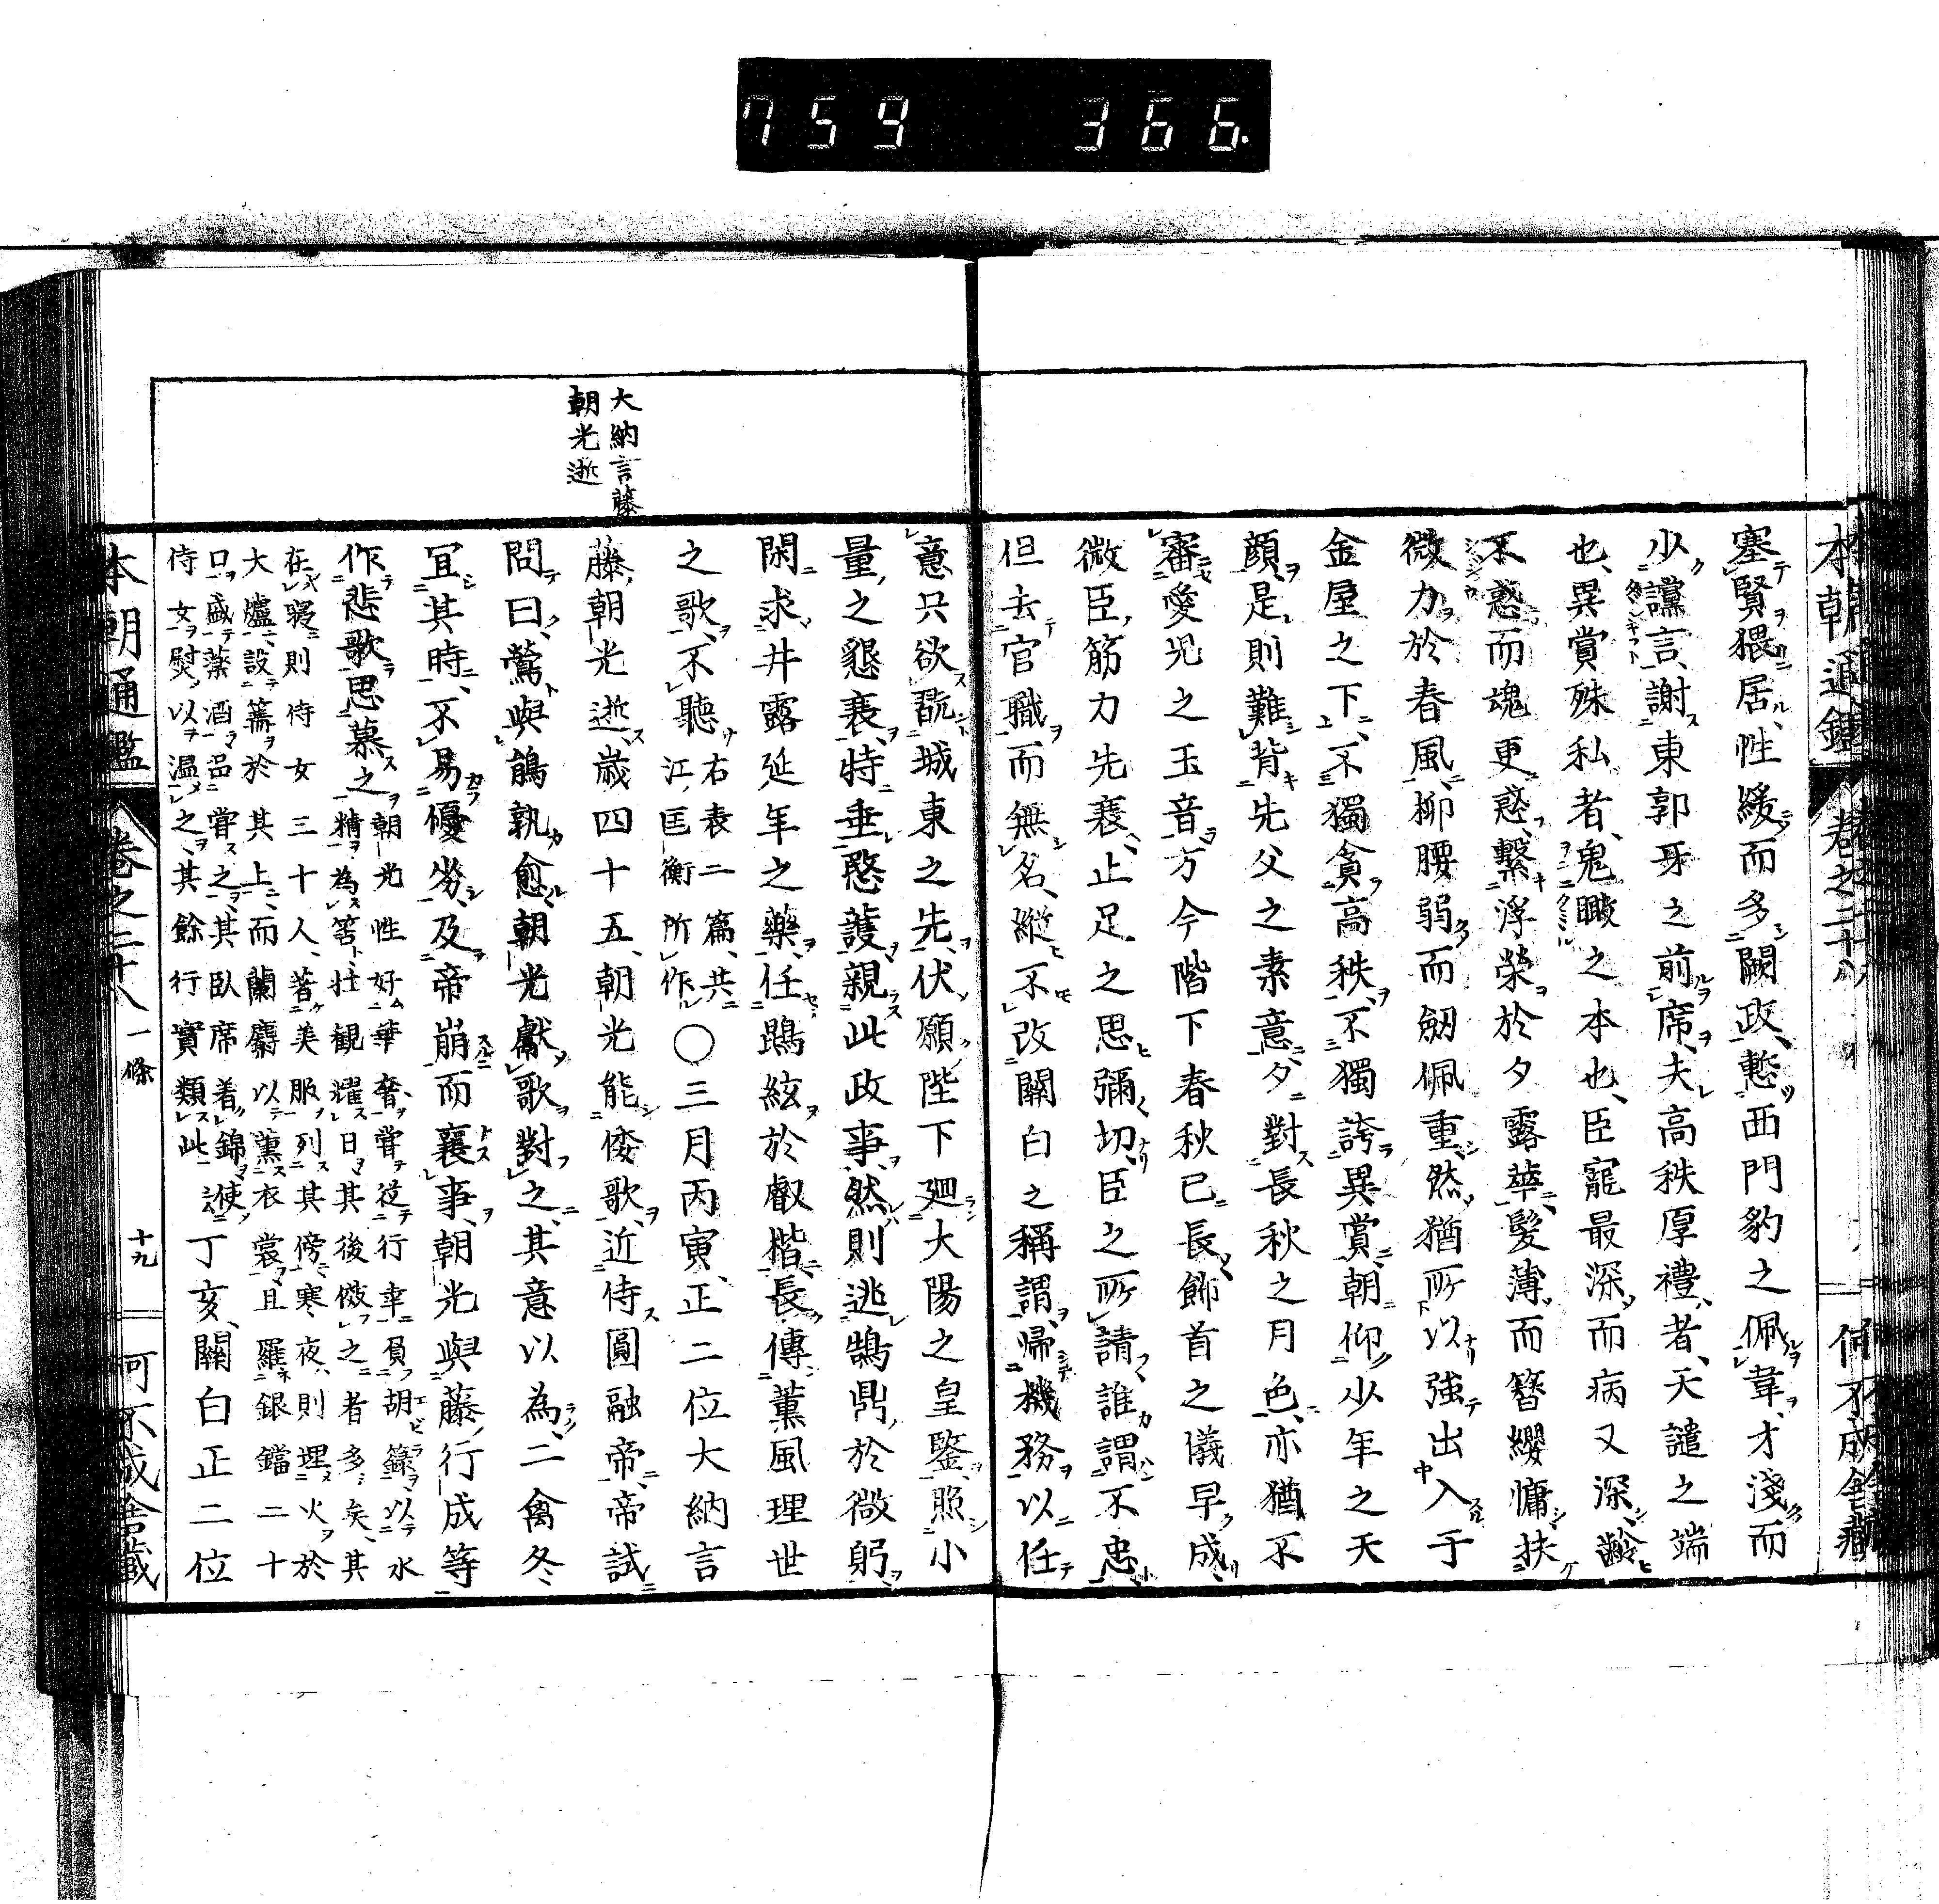 759 366.
本朝通鑑 卷之二十八 何不成舍藏
塞賢猥居、性緩而多闕政、慙西門豹之佩韋、才淺而
少讜言、謝東郭牙之前席、夫高秩厚禮者、天譴之端
也、異賞殊私者、鬼瞰之本也、臣寵最深而病又深、齡
不惑而魂更惑、繫浮榮於夕露華、髮薄而簪纓慵扶
微力於春風、柳腰弱而劒佩重、然猶所以強出入于
金屋之下、不獨貪高秩、不獨誇異賞、朝仰少年之天
顔、是則難背先父之素意、夕對長秋之月色、亦猶不
審愛兒之玉音、方今階下春秋已長、飾首之儀早成、
微臣筋力先衰、止足之思彌切、臣之所請誰謂不忠、
但去官職而無名、縱不改關白之稱謂、歸機務以任
意只欲翫城東之先、伏願陛下廻大陽之皇鑒、照小
量之懇衰、特垂愍護、親此政事、然則逃鵠鼎於微躬、
閑求井露延年之藥、任鵾絃於叡楷、長傳薫風理世
之歌、不聽右表二篇、共江匡衡所作○三月丙寅、正二位大納言
大納言藤朝光逝
藤朝光逝、歳四十五、朝光能倭歌、近侍圓融帝、帝試
問曰、鶯與鵠孰愈、朝光獻歌對之、其意以為、二禽冬
宜其時、不易優劣、及帝崩而襄事、朝光與藤行成等
作悲歌思慕之、朝光性好華奢、嘗從行幸負胡籙以水
精為筈、壯観耀日、其後傚之者多矣、其
在寝則侍女三十人、著美服列其傍、寒夜則埋火於
大爐、設籌於其上、而蘭麝以薫衣裳、且羅銀鐺二十
口、盛藥酒品嘗之、其臥席着錦、使
侍女熨以温之、其餘行實類此 丁亥、關白正二位
本朝通鑑 卷之二十八 一條 十九 何不成舍藏